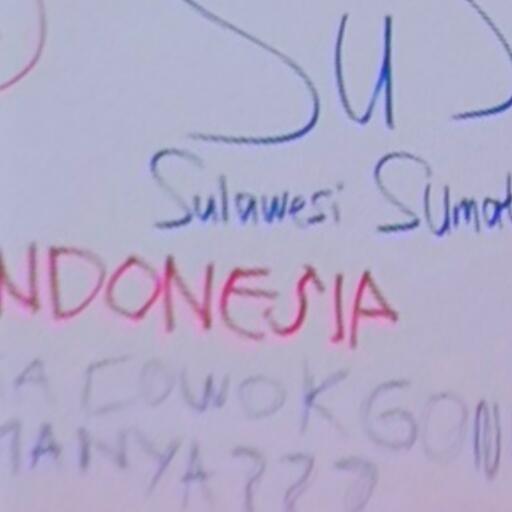 SUS
Sulawesi Sumat
NDONESIA
A COWOK GON
MANYA???